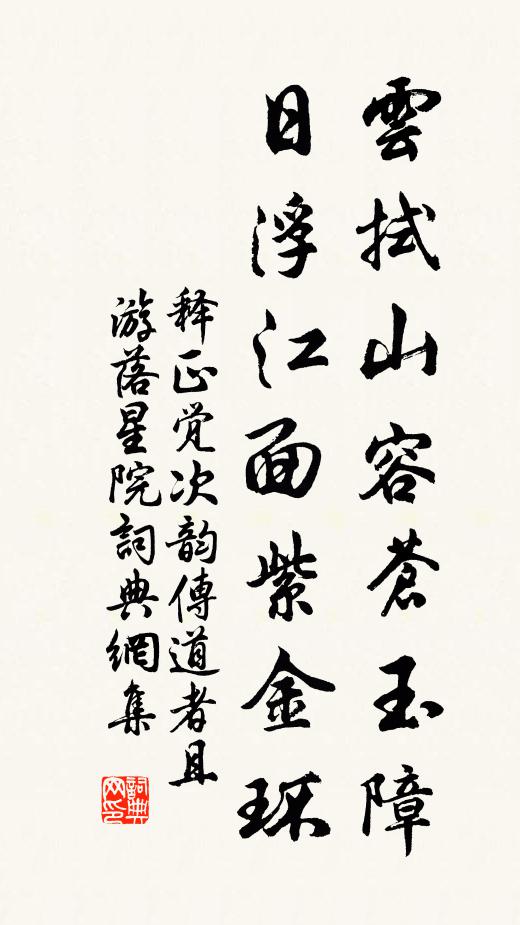 雲拭山容蒼玉障
日浮江面紫金环
释正觉次韵傳道者且
游落星院詞典網集
詞典网印